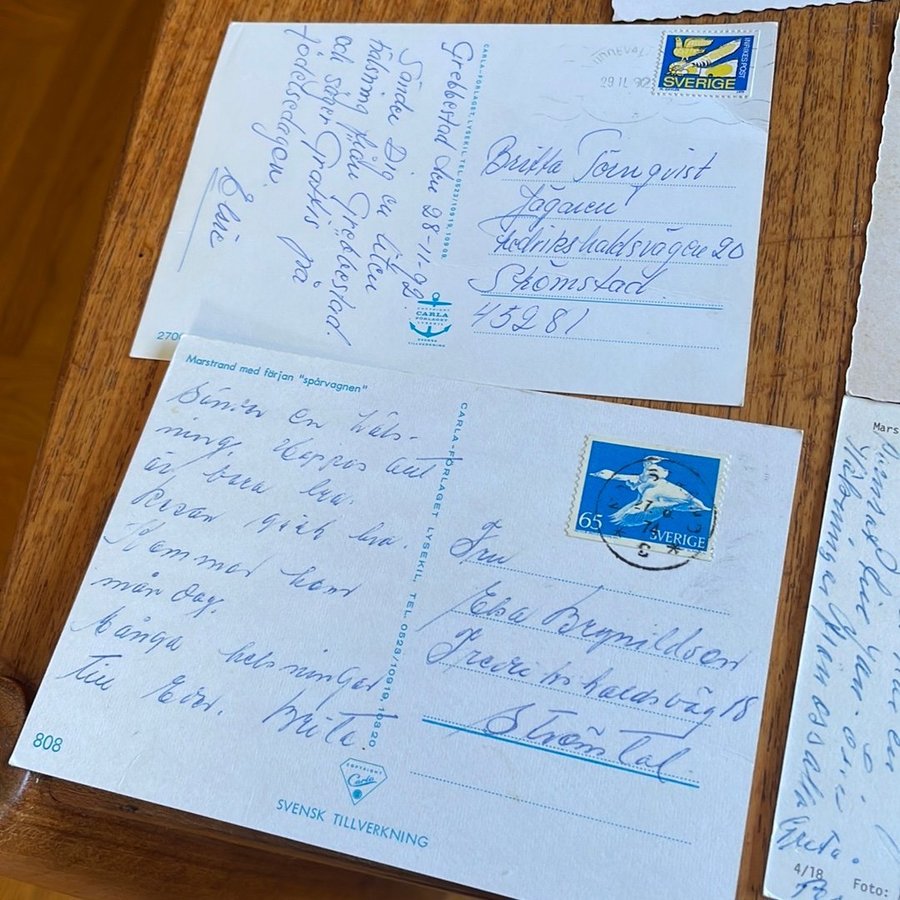 Grebbestad den 28-11-92
Sänder Dig en liten
hälsning från Grebbestad
och säger Grattis på
födelsedagen.
CARLA-FÖRLAGET LYSEKIL TEL 0523/10919, 10809
COPYRIGHT
CARLA
FÖRLAGET
LYSEKIL
SVENSK
TILLVERKNING
2700
29 11 92
INRIKES POST
SVERIGE
Britta Törnqvist
Jägaren
Fredrikshaldsvägen 20
Strömstad
45281
Marstrand med färjan "spårvagnen"
Sänder en häls-
ning. Hoppas allt
är bara bra.
Resan gick bra.
Kommer hem
mån dag.
Många helsningar
till Eder. Brita.
808
CARLA-FÖRLAGET LYSEKIL. TEL. 0523/10919, 10820
COPYRIGHT
Carla
SVENSK TILLVERKNING
65
SVERIGE
Fru
Elsa Brynildsen
Fredrikshaldsväg 18
Mars
Greta.
4/18
Foto: